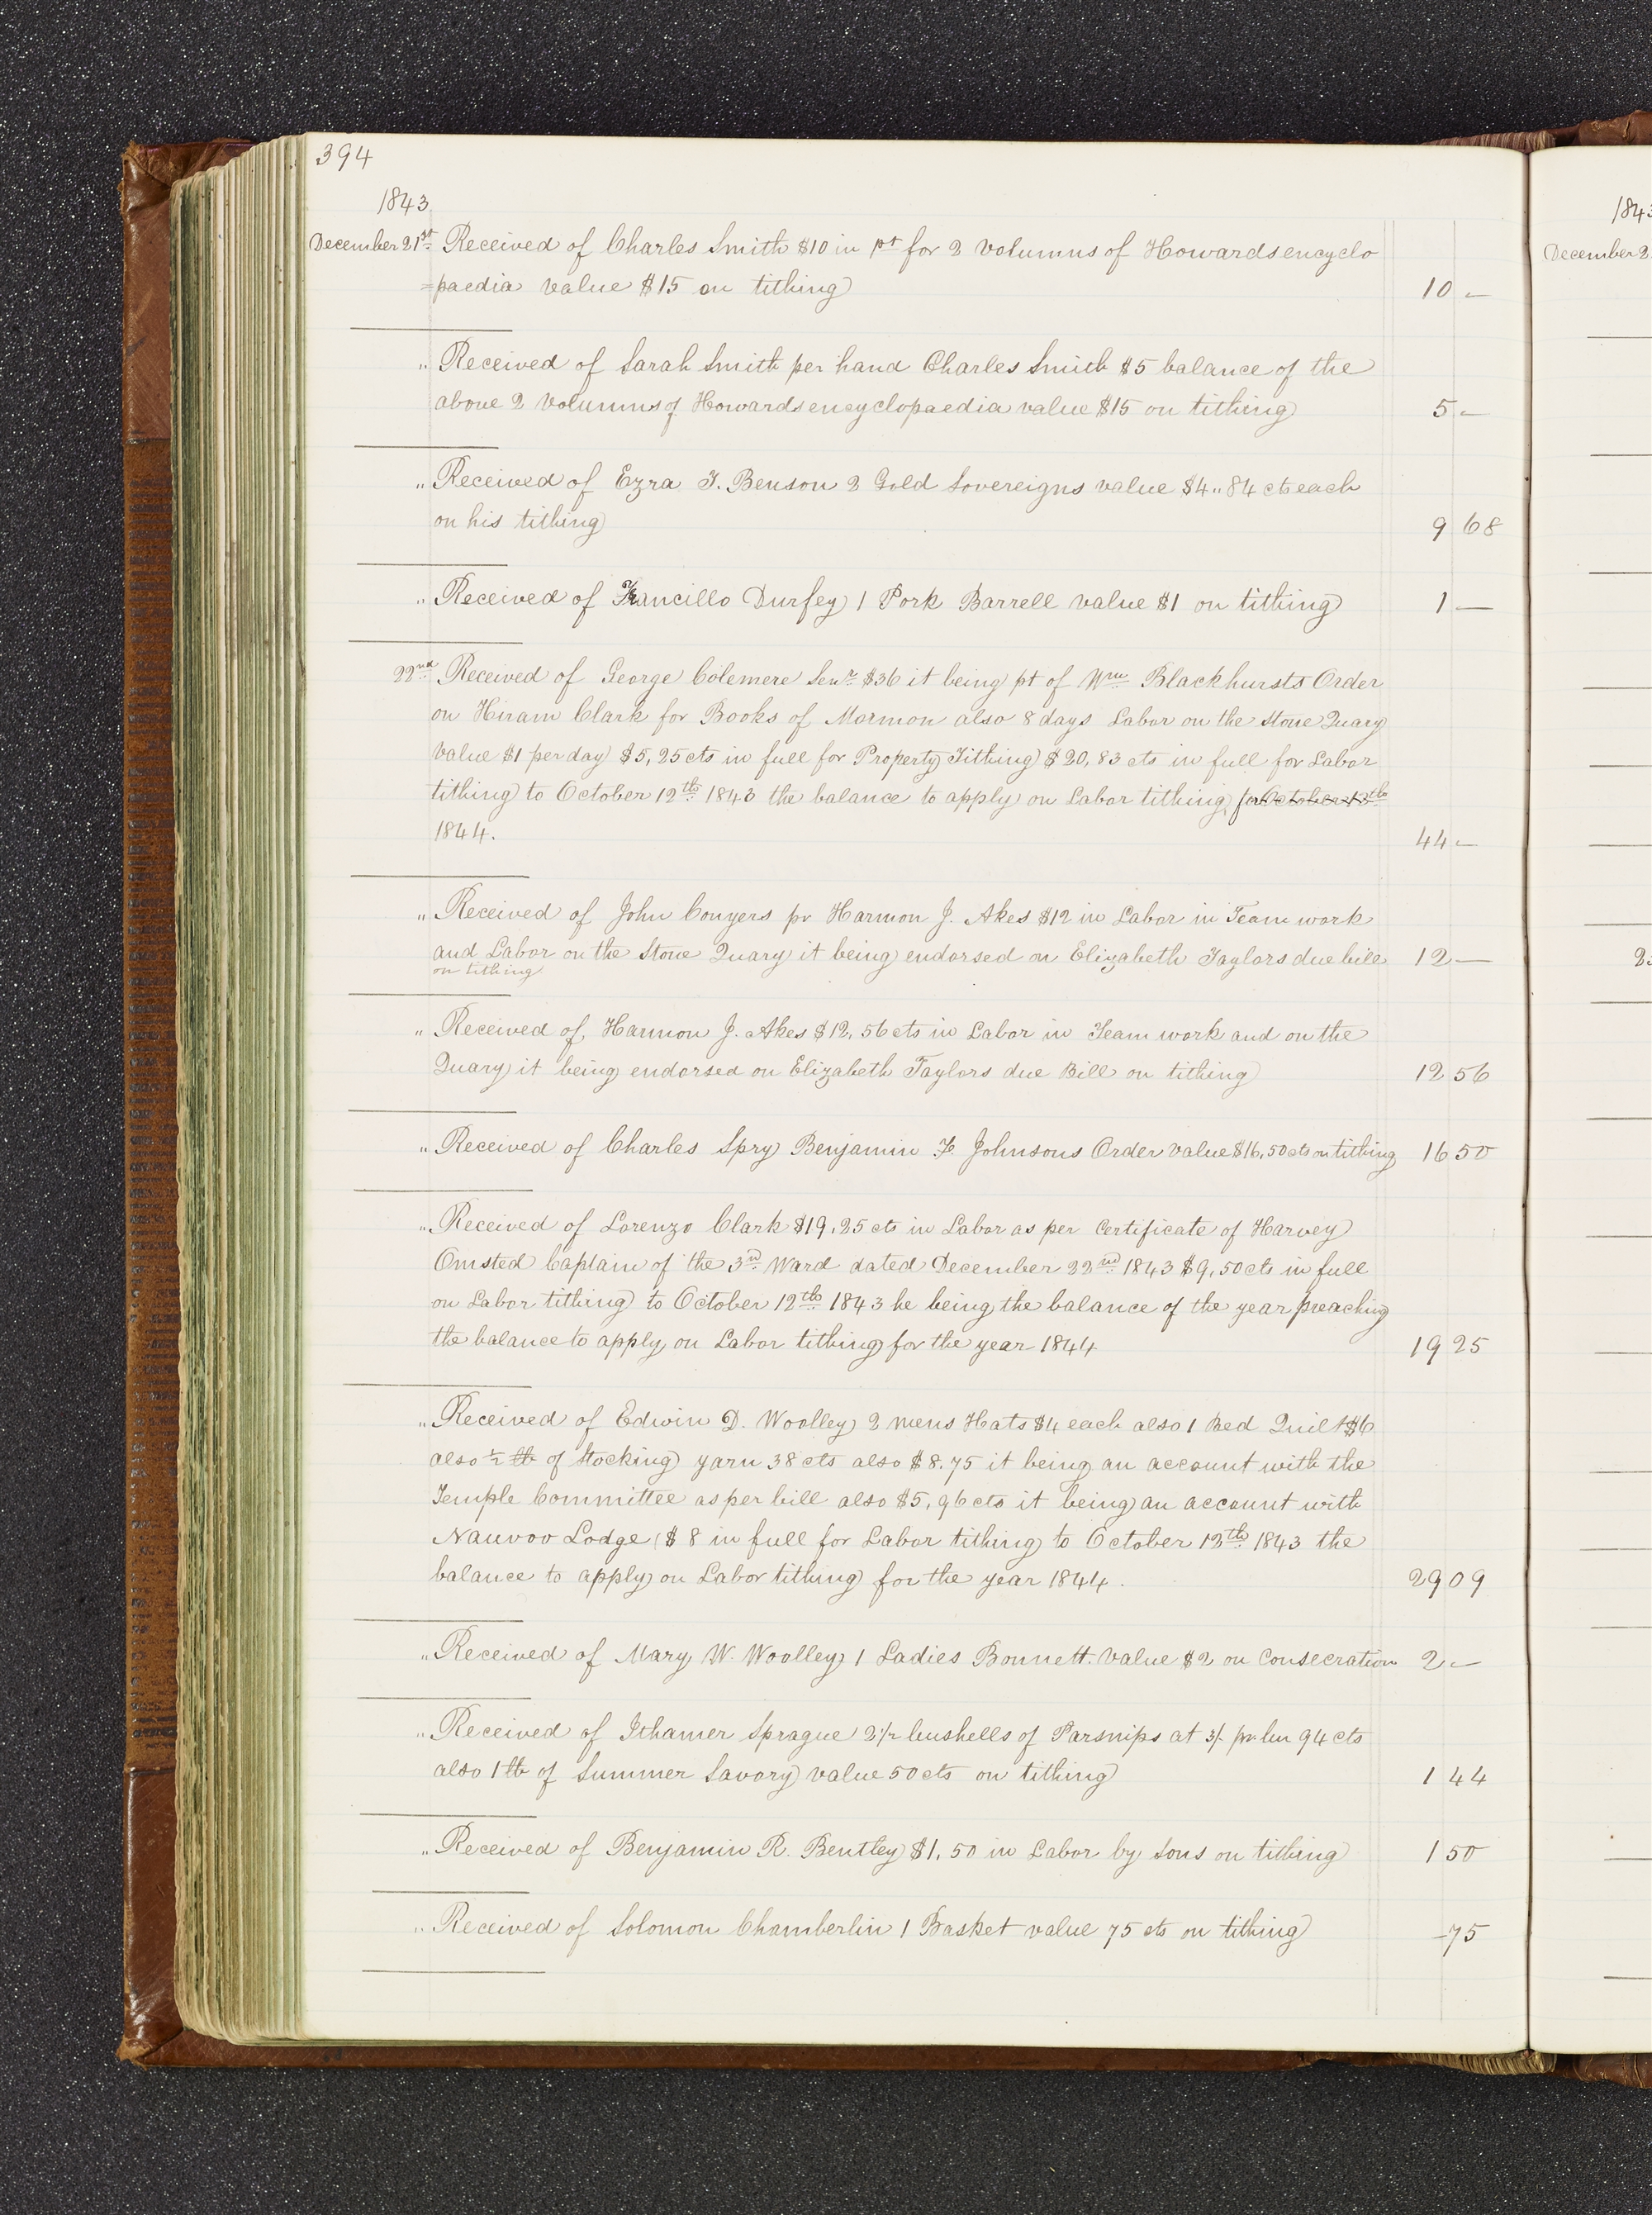 394
1843
December 21st Received of Charles Smith $10 in pt for 2 volumns of Howards encyclo
=paedia value $15 on tithing
10 -
" Received of Sarah Smith per hand Charles Smith $5 balance of the
above 2 volumns of Howards encyclopaedia value $15 on tithing
5 -
" Received of Ezra T. Benson 2 Gold Sovereigns value $4"84 cts each
on his tithing
9 68
" Received of Francillo Durfey 1 Pork Barrell value $1 on tithing 1 —
22nd Received of George Colemere Senr. $36 it being pt of Wm Blackhursts Order
on Hiram Clark for Books of Mormon also 8 days Labor on the stone Quary
value $1 per day $5,25 cts in full for Property Tithing $20,83 cts in full for Labor
tithing to October 12th 1843 the balance to apply on Labor tithing for October 13th
1844.
44 -
" Received of John Conyers pr Harmon J. Akes $12 in Labor in Team work
and Labor on the Stone Quary it being endorsed on Elizabeth Taylors due bill 12 —
on tithing
" Received of Harmon J. Akes $12,56 cts in Labor in Team work and on the
Quary it being endorsed on Elizabeth Taylors due Bill on tithing 12 56
" Received of Charles Spry Benjamin F. Johnsons Order value $16,50 cts on tithing 16 50
" Received of Lorenzo Clark $19,25 cts in Labor as per Certificate of Harvey
Omsted Captain of the 3rd Ward dated December 22nd 1843 $9,50 cts in full
on Labor tithing to October 12th 1843 he being the balance of the year preaching
the balance to apply on Labor tithing for the year 1844 19 25
" Received of Edwin D. Woolley 2 mens Hats $4 each also 1 Bed Quilt $6
also ½ lb of Stocking yarn 38 cts also $8.75 it being an account with the
Temple Committee as per bill also $5,96 cts it being an account with
Nauvoo Lodge ($8 in full for Labor tithing to October 12th 1843 the
balance to apply on Labor tithing for the year 1844. 29 09
" Received of Mary W. Woolley 1 Ladies Bonnett value $2 on Consecration 2 -
" Received of Ithamer Sprague 2 1/2 bushells of Parsnips at 3/- pr bu 94 cts
also 1 lb of Summer Savory value 50 cts on tithing 1 44
" Received of Benjamin R. Bentley $1,50 in Labor by Sons on tithing 1 50
" Received of Solomon Chamberlin 1 Basket value 75 cts on tithing -75
1843
December 2